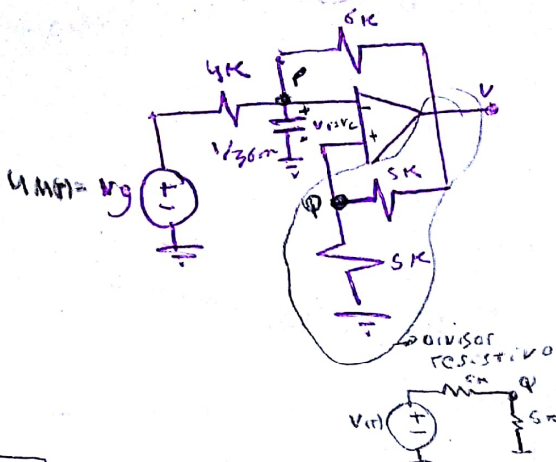 6K
4K
P
V
+
-
+
-
1/36m
+
4u(t)= vg
+
-
Q
5K
5K
→ Divisor
resistivo
5K
Q
V(t)
+
-
5K